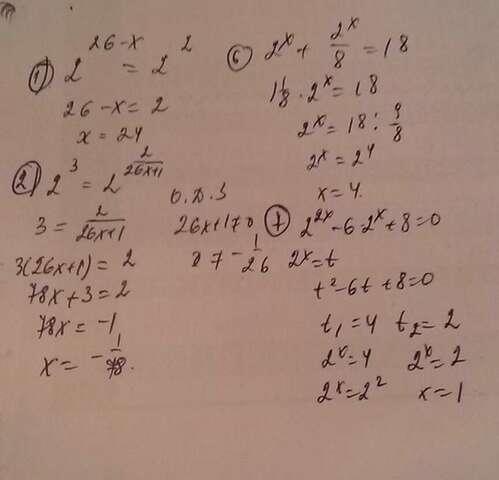 1) 2^(26-x) = 2^2
26-x = 2
x = 24
2) 2^3 = 2^(2/(26x+1))
О.Д.З
3 = 2/(26x+1)
26x+1>0
3(26x+1) = 2
x > -1/26
78x+3 = 2
78x = -1
x = -1/78.
6) 2^x + 2^x/8 = 18
1 1/8 · 2^x = 18
2^x = 18 : 9/8
2^x = 2^4
x = 4.
7) 2^(2x) - 6·2^x + 8 = 0
2^x = t
t^2 - 6t + 8 = 0
t₁ = 4 t₂ = 2
2^x = 4 2^x = 2
2^x = 2^2 x = 1